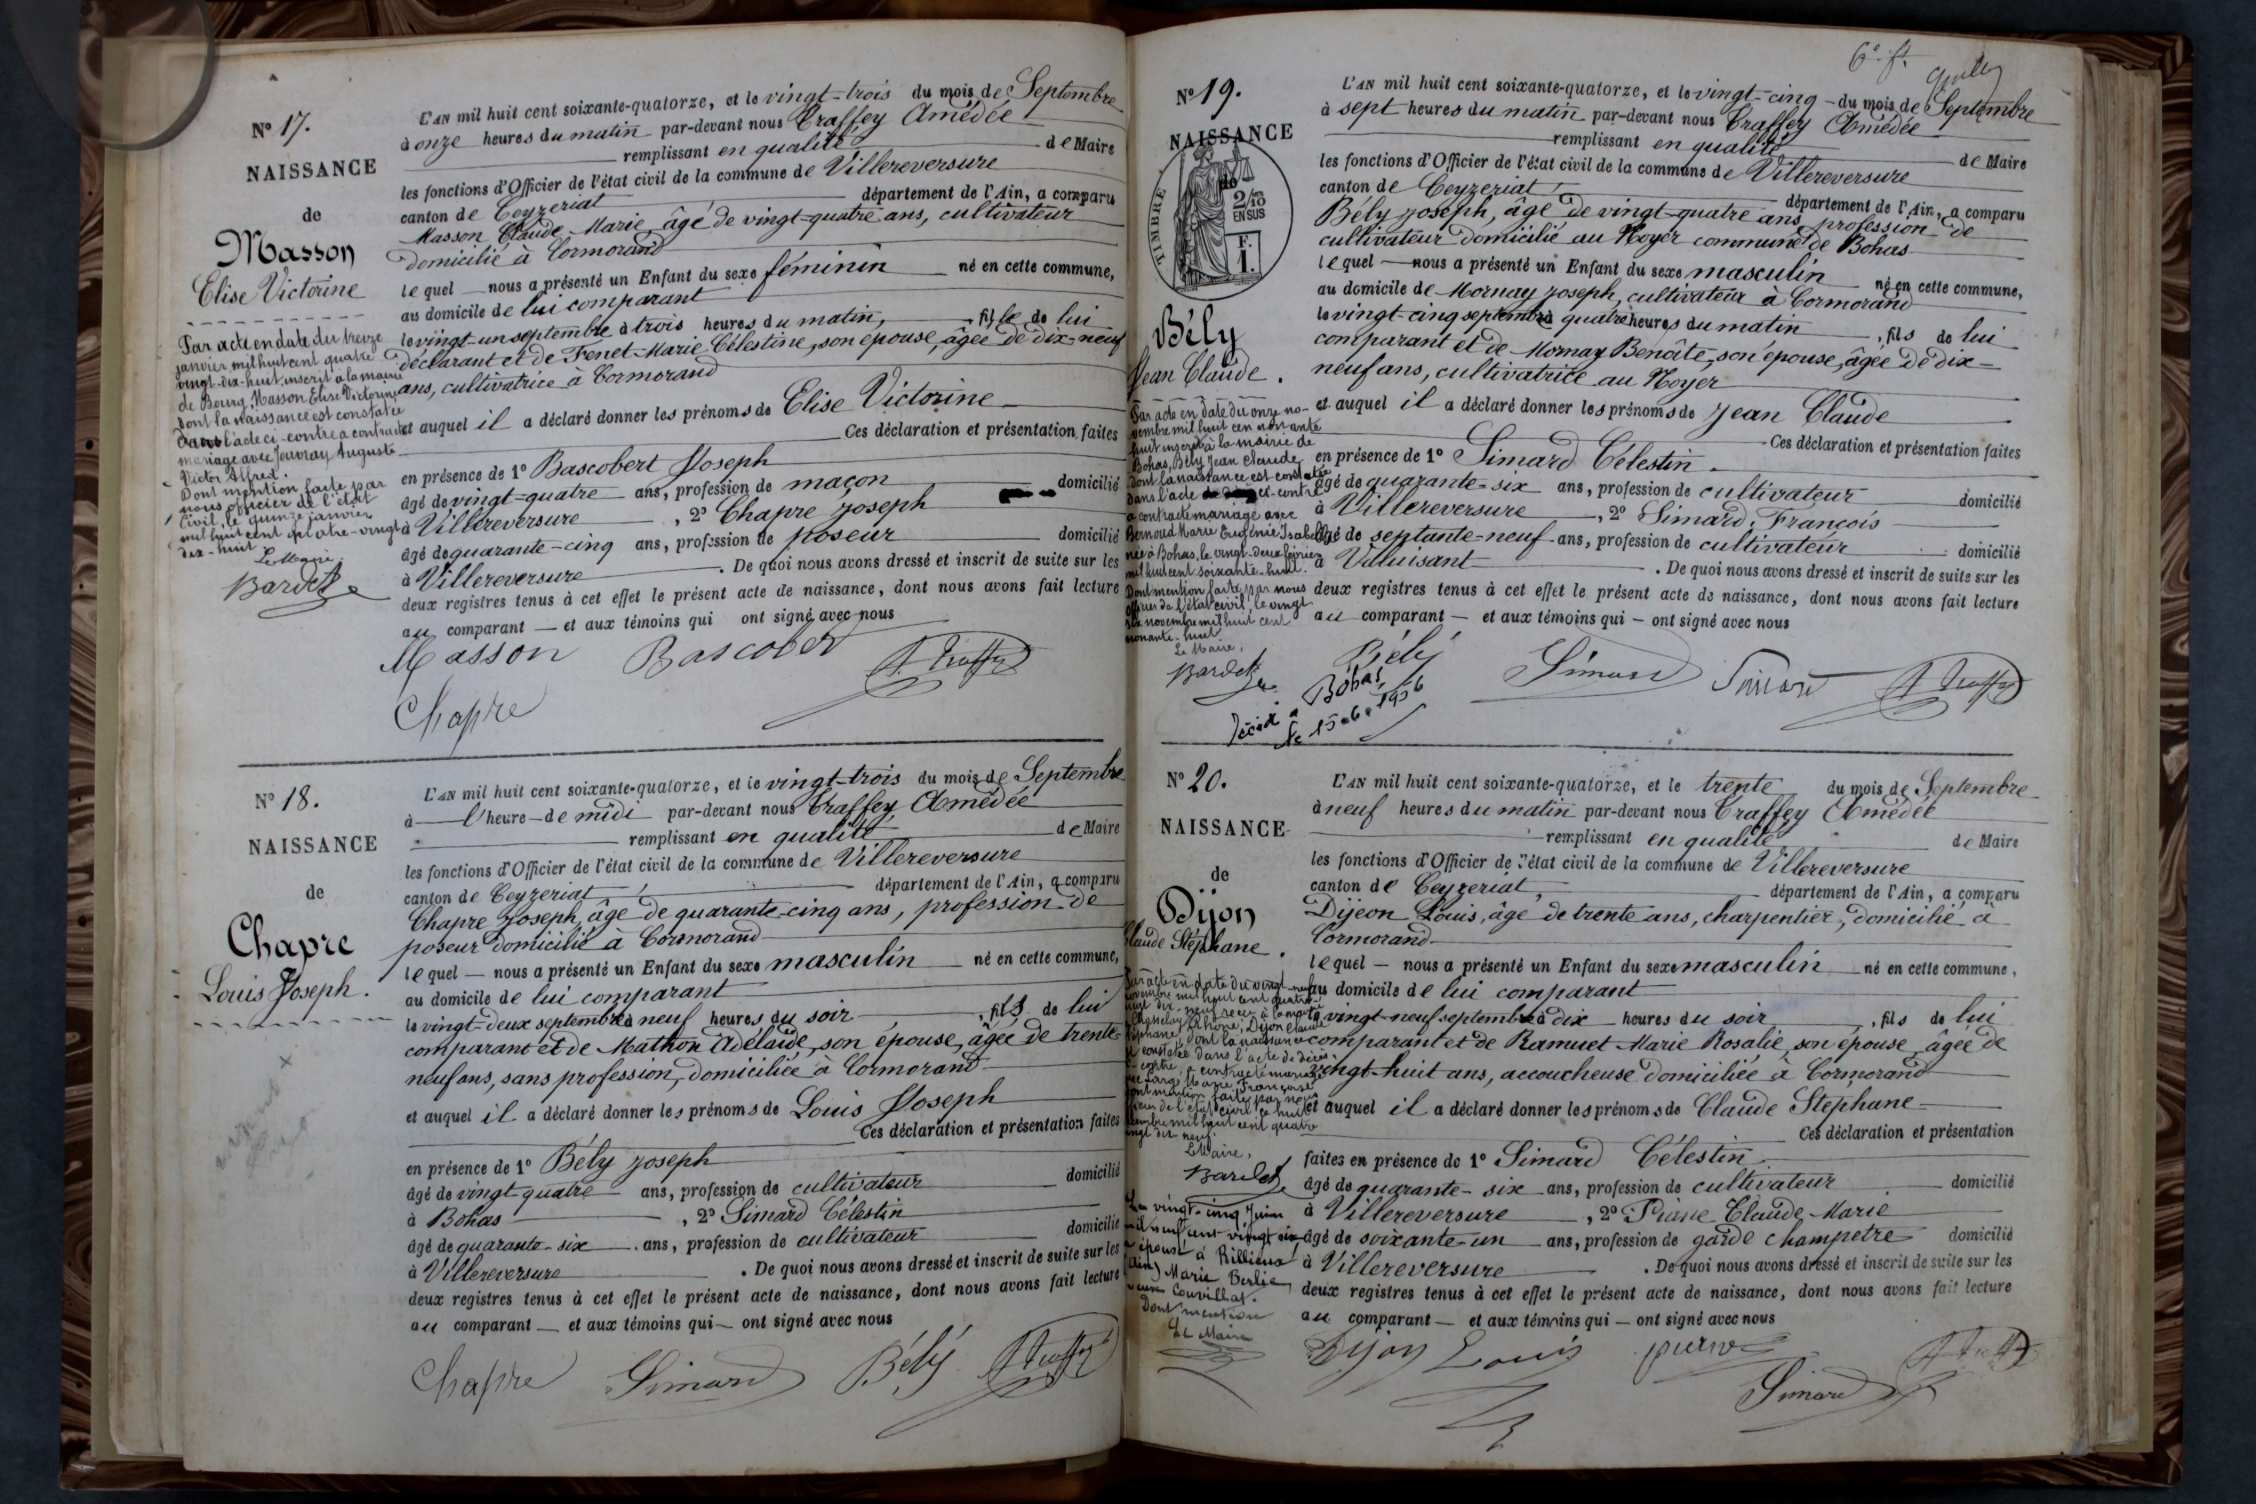 N° 17.
NAISSANCE
de
Masson
Elise Victorine
Par acte en date du treize
janvier mil huit cent quatre
vingt-dix-huit, inscrit à la mairie
de Bourg, Masson Elise Victorine
dont la naissance est constatée
dans l'acte ci-contre a contracté
mariage avec Jouvray Auguste
Victor Alfred.
Dont mention faite par
nous officier de l'état
civil, le quinze janvier
mil huit cent quatre-vingt
dix-huit
Le Maire
L'AN mil huit cent soixante-quatorze, et le vingt-trois du mois de Septembre
à onze heures du matin par-devant nous Traffey Amédée
remplissant en qualité de Maire
les fonctions d'Officier de l'état civil de la commune de Villereversure
canton de Ceyzeriat département de l'Ain, a comparu
Masson Claude Marie, âgé de vingt-quatre ans, cultivateur
domicilié à Cormorand
lequel nous a présenté un Enfant du sexe féminin né en cette commune,
au domicile de lui comparant
le vingt-un septembre à trois heures du matin, fille de lui
déclarant et de Fenet Marie Célestine, son épouse, âgée de dix-neuf
ans, cultivatrice à Cormorand
et auquel il a déclaré donner les prénoms de Elise Victorine
Ces déclaration et présentation faites
en présence de 1° Bascobert Joseph
âgé de vingt-quatre ans, profession de maçon domicilié
à Villereversure, 2° Chapre Joseph
âgé de quarante-cinq ans, profession de poseur domicilié
à Villereversure. De quoi nous avons dressé et inscrit de suite sur les
deux registres tenus à cet effet le présent acte de naissance, dont nous avons fait lecture
au comparant et aux témoins qui ont signé avec nous
Masson Bascobert
Chapre
N° 18.
NAISSANCE
de
Chapre
Louis Joseph.
L'AN mil huit cent soixante-quatorze, et le vingt-trois du mois de Septembre
à l'heure de midi par-devant nous Traffey Amédée
remplissant en qualité de Maire
les fonctions d'Officier de l'état civil de la commune de Villereversure
canton de Ceyzeriat département de l'Ain, a comparu
Chapre Joseph, âgé de quarante-cinq ans, profession de
poseur domicilié à Cormorand
lequel nous a présenté un Enfant du sexe masculin né en cette commune,
au domicile de lui comparant
le vingt-deux septembre à neuf heures du soir, fils de lui
comparant et de Mathon Adélaïde, son épouse, âgée de trente-
neuf ans, sans profession, domiciliée à Cormorand
et auquel il a déclaré donner les prénoms de Louis Joseph
Ces déclaration et présentation faites
en présence de 1° Bély Joseph
âgé de vingt-quatre ans, profession de cultivateur domicilié
à Bohas, 2° Simard Célestin
âgé de quarante-six ans, profession de cultivateur domicilié
à Villereversure. De quoi nous avons dressé et inscrit de suite sur les
deux registres tenus à cet effet le présent acte de naissance, dont nous avons fait lecture
au comparant et aux témoins qui ont signé avec nous
Chapre Simard Bély
6e ft.
N° 19.
NAISSANCE
de
TIMBRE
2/10
EN SUS
F.
1.
Bély
Jean Claude.
Par acte en date du onze no-
vembre mil huit cent nonante
huit inscrit à la mairie de
Bohas, Bély Jean Claude
dont la naissance est constatée
dans l'acte ci-contre
a contracté mariage avec
Bernoud Marie Eugénie Isabelle
née à Bohas, le vingt-deux février
mil huit cent soixante-huit.
Dont mention faite par nous
officier de l'état civil, le vingt
novembre mil huit cent
nonante-huit.
Le Maire,
Décédé à Bohas
le 15-6-1956
L'AN mil huit cent soixante-quatorze, et le vingt-cinq du mois de Septembre
à sept heures du matin par-devant nous Traffey Amédée
remplissant en qualité de Maire
les fonctions d'Officier de l'état civil de la commune de Villereversure
canton de Ceyzeriat, département de l'Ain, a comparu
Bély Joseph, âgé de vingt-quatre ans, profession de
cultivateur domicilié au Noyer commune de Bohas
lequel nous a présenté un Enfant du sexe masculin né en cette commune,
au domicile de Mornay Joseph, cultivateur à Cormorand
le vingt-cinq septembre à quatre heures du matin, fils de lui
comparant et de Mornay Benoîte, son épouse, âgée de dix-
neuf ans, cultivatrice au Noyer
et auquel il a déclaré donner les prénoms de Jean Claude
Ces déclaration et présentation faites
en présence de 1° Simard Célestin.
âgé de quarante-six ans, profession de cultivateur domicilié
à Villereversure, 2° Simard, François
âgé de septante-neuf ans, profession de cultivateur domicilié
à Valuisant. De quoi nous avons dressé et inscrit de suite sur les
deux registres tenus à cet effet le présent acte de naissance, dont nous avons fait lecture
au comparant et aux témoins qui ont signé avec nous
Bély Simard Simard
N° 20.
NAISSANCE
de
Dijon
Claude Stéphane.
Par acte en date du vingt-neuf
novembre mil huit cent quatre-
vingt dix-neuf reçu à la mairie
Rhône, Dijon Claude
Stéphane, dont la naissance
est constatée dans l'acte
ci-contre, a contracté mariage
avec Large Marie Françoise
Dont mention faite par nous
officier de l'état civil, le huit
décembre mil huit cent quatre
vingt dix neuf.
Le Maire,
Le vingt-cinq Juin
mil neuf cent vingt six
a épousé à Rillieux
(Ain) Marie Berlie
veuve Couvillat.
Dont mention
Le Maire
L'AN mil huit cent soixante-quatorze, et le trente du mois de Septembre
à neuf heures du matin par-devant nous Traffey Amédée
remplissant en qualité de Maire
les fonctions d'Officier de l'état civil de la commune de Villereversure
canton de Ceyzeriat, département de l'Ain, a comparu
Dijeon Louis, âgé de trente ans, charpentier, domicilié à
Cormorand
lequel nous a présenté un Enfant du sexe masculin né en cette commune,
au domicile de lui comparant
le vingt-neuf septembre à dix heures du soir, fils de lui
comparant et de Ramuet Marie Rosalie, son épouse, âgée de
vingt-huit ans, accoucheuse domiciliée à Cormorand
et auquel il a déclaré donner les prénoms de Claude Stephane
Ces déclaration et présentation
faites en présence de 1° Simard Célestin.
âgé de quarante-six ans, profession de cultivateur domicilié
à Villereversure, 2° Piane Claude Marie
âgé de soixante-un ans, profession de garde champetre domicilié
à Villereversure. De quoi nous avons dressé et inscrit de suite sur les
deux registres tenus à cet effet le présent acte de naissance, dont nous avons fait lecture
au comparant et aux témoins qui ont signé avec nous
Dijon Louis
Simard